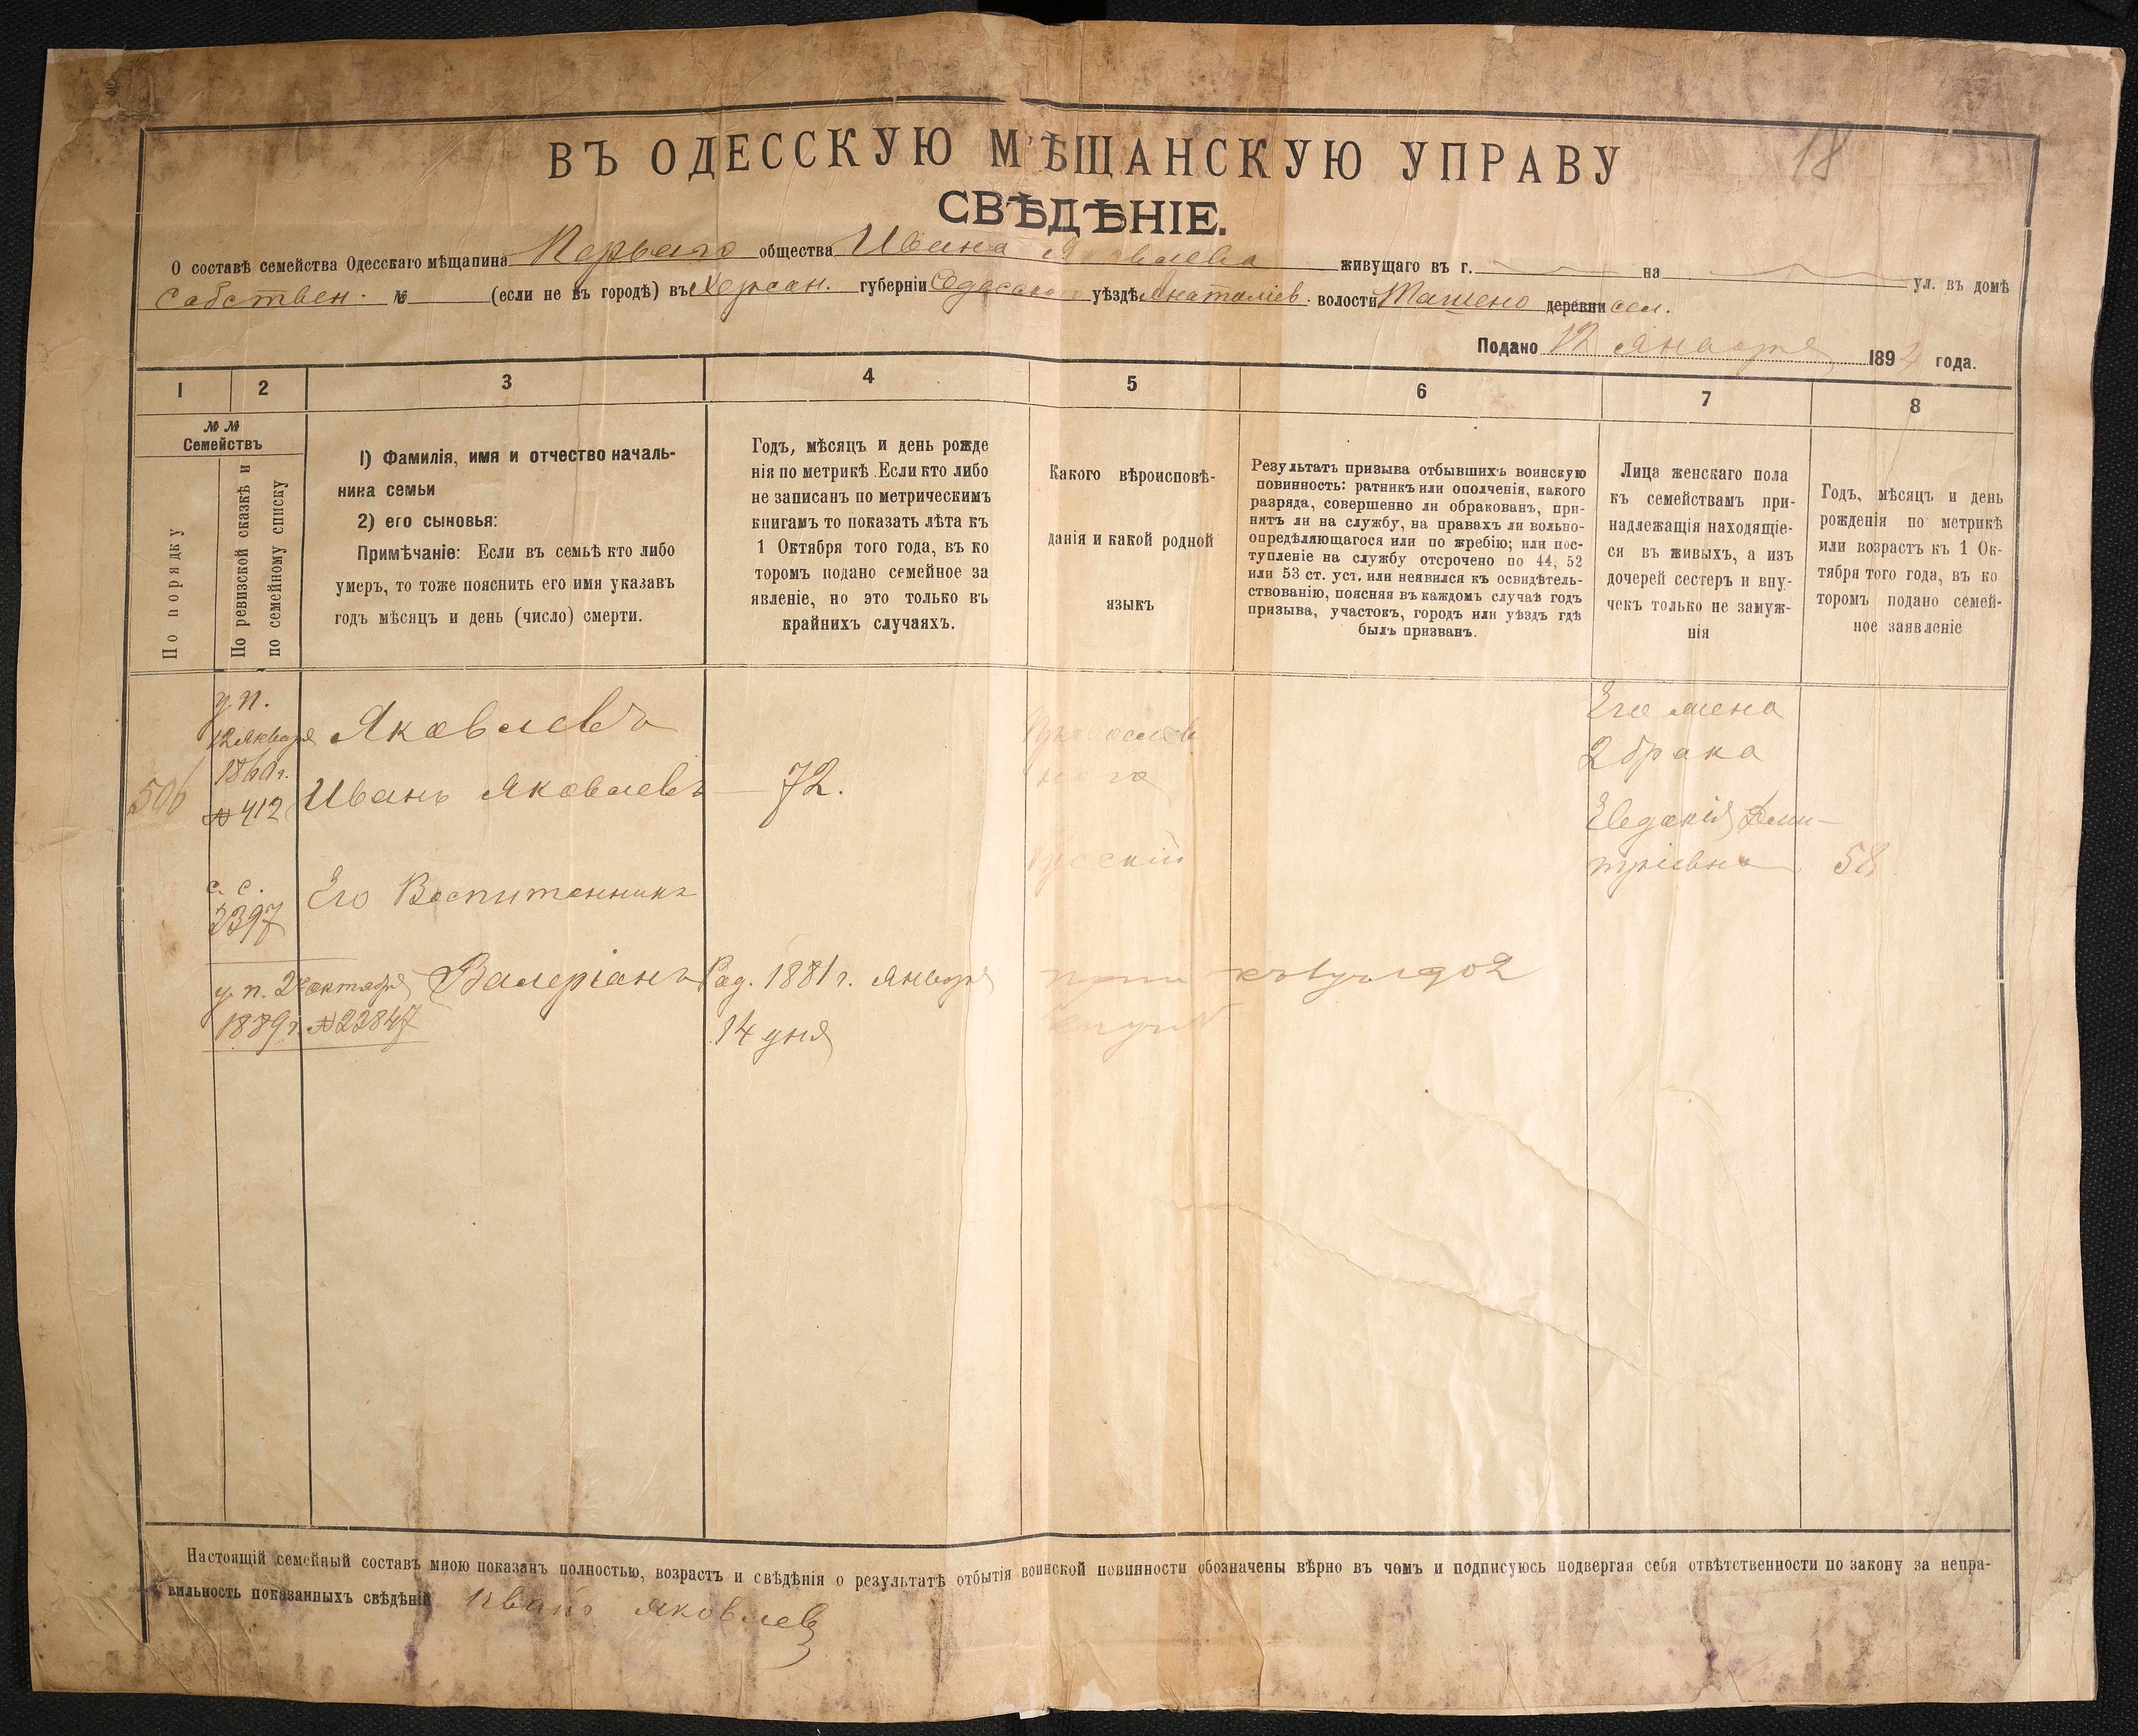 18
ВЪ ОДЕССКУЮ МѢЩАНСКУЮ УПРАВУ
СВѢДѢНІЕ.
О составѣ семейства Одесскаго мѣщанина Перваго общества Ивана Яковлева живущаго въ г. на ул. въ домѣ
Собствен. № (если не въ городѣ) въ Херсон. губерніи Одесскаго уѣздѣ Анатоліев. волости Ташено деревни сел.
Подано 12 Января 1892 года.
1 2 3 4 5 6 7 8
№ №
Семействъ
По порядку
По ревизской сказкѣ и
по семейному списку
1) Фамилія, имя и отчество началь-
ника семьи
2) его сыновья:
Примѣчаніе: Если въ семьѣ кто либо
умеръ, то тоже пояснить его имя указавъ
годъ мѣсяцъ и день (число) смерти.
Годъ, мѣсяцъ и день рожде
нія по метрикѣ. Если кто либо
не записанъ по метрическимъ
книгамъ то показать лѣта къ
1 Октября того года, въ ко
торомъ подано семейное за
явленіе, но это только въ
крайнихъ случаяхъ.
Какого вѣроисповѣ-
данія и какой родной
языкъ
Результатъ призыва отбывшихъ воинскую
повинность: ратникъ или ополченія, какого
разряда, совершенно ли обракованъ, при-
нятъ ли на службу, на правахъ ли вольно-
опредѣляющагося или по жребію; или пос-
тупленіе на службу отсрочено по 44, 52
или 53 ст. уст. или неявился къ освидѣтель-
ствованію, поясняя въ каждомъ случаѣ годъ
призыва, участокъ, городъ или уѣздъ гдѣ
былъ призванъ.
Лица женскаго пола
къ семействамъ при-
надлежащія находящіе-
ся въ живыхъ, а изъ
дочерей сестеръ и вну-
чекъ только не замуж-
нія
Годъ, мѣсяцъ и день
рожденія по метрикѣ
или возрастъ къ 1 Ок-
тября того года, въ ко
торомъ подано семей-
ное заявленіе
506
у. п.
12 Января
1860 г.
№ 412
Яковлевъ
Иванъ Яковлевъ — 72.
Православ
наго
Русскій
Его жена
2 брака
Евдокія Дми-
тріевна 58
с. с.
2397
Его Воспитанникъ
у. п. 2 октября
1889 г. № 22847
Валеріанъ Род. 1881 г. Января
14 дня
Настоящій семейный составъ мною показанъ полностью, возрастъ и свѣдѣнія о результатѣ отбытія воинской повинности обозначены вѣрно въ чемъ и подписуюсь подвергая себя отвѣтственности по закону за непра-
вильность показанныхъ свѣдѣній Иванъ Яковлев